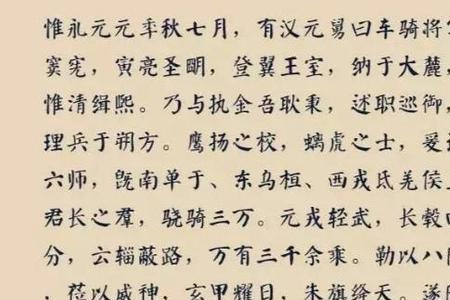 惟永元元年秋七月，有汉元舅曰车骑将
窦宪，寅亮圣明，登翼王室，纳于大麓，
惟清缉熙。乃与执金吾耿秉，述职巡御，
理兵于朔方。鹰扬之校，螭虎之士，爰
六师，既南单于、东乌桓、西戎氐羌侯
君长之群，骁骑三万。元戎轻武，长毂
分，云辎蔽路，万有三千余乘。勒以八
，莅以威神，玄甲耀日，朱旗绛天。遂